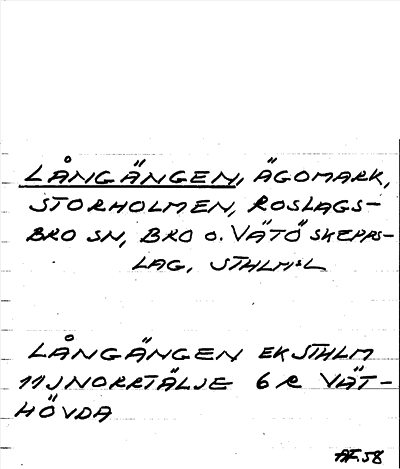 LÅNGÄNGEN, ÄGOMARK,
STORHOLMEN, ROSLAGS-
BRO SN, BRO O. VÄTÖ SKEPPS-
LAG, STHLM:S L
LÅNGÄNGEN EK STHLM
11J NORRTÄLJE 6 R VÄT-
HÖVDA
AF. 58